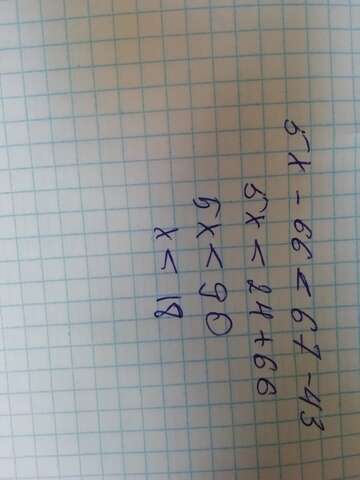 5x - 66 < 67 - 43
5x < 24 + 66
5x < 90
x < 18